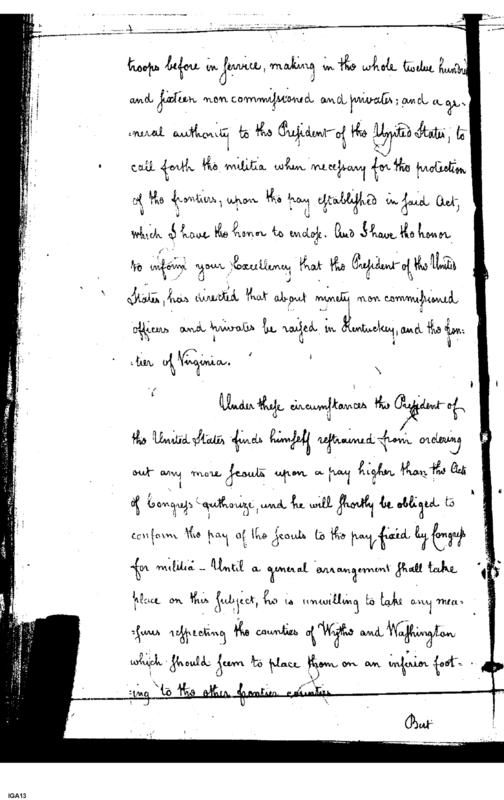 troops before in service, making in the whole twelve hundred
and sixteen non commissioned and privates; and a ge-
:neral authority to the President of the United States, to
call forth the militia when necessary for the protection
of the frontiers, upon the pay established in said Act,
which I have the honor to endose. And I have the honor
to inform your Excellency that the President of the United
States, has directed that about ninety non commissioned
officers and privates be raised in Kentuckey, and the fron:
:tier of Virginia.
Under these circumstances the President of
the United States finds himself restrained from ordering
out any more Scouts upon a pay higher than the Acts
of Congress authorize, and he will shortly be obliged to
conform the pay of the Scouts to the pay fixed by Congress
for militia - Until a general arrangement shall take
place on this subject, he is unwilling to take any mea-
:sures respecting the counties of Wythe and Washington
which should seem to place them on an inferior foot-
:ing to the other frontier counties
But
IGA13